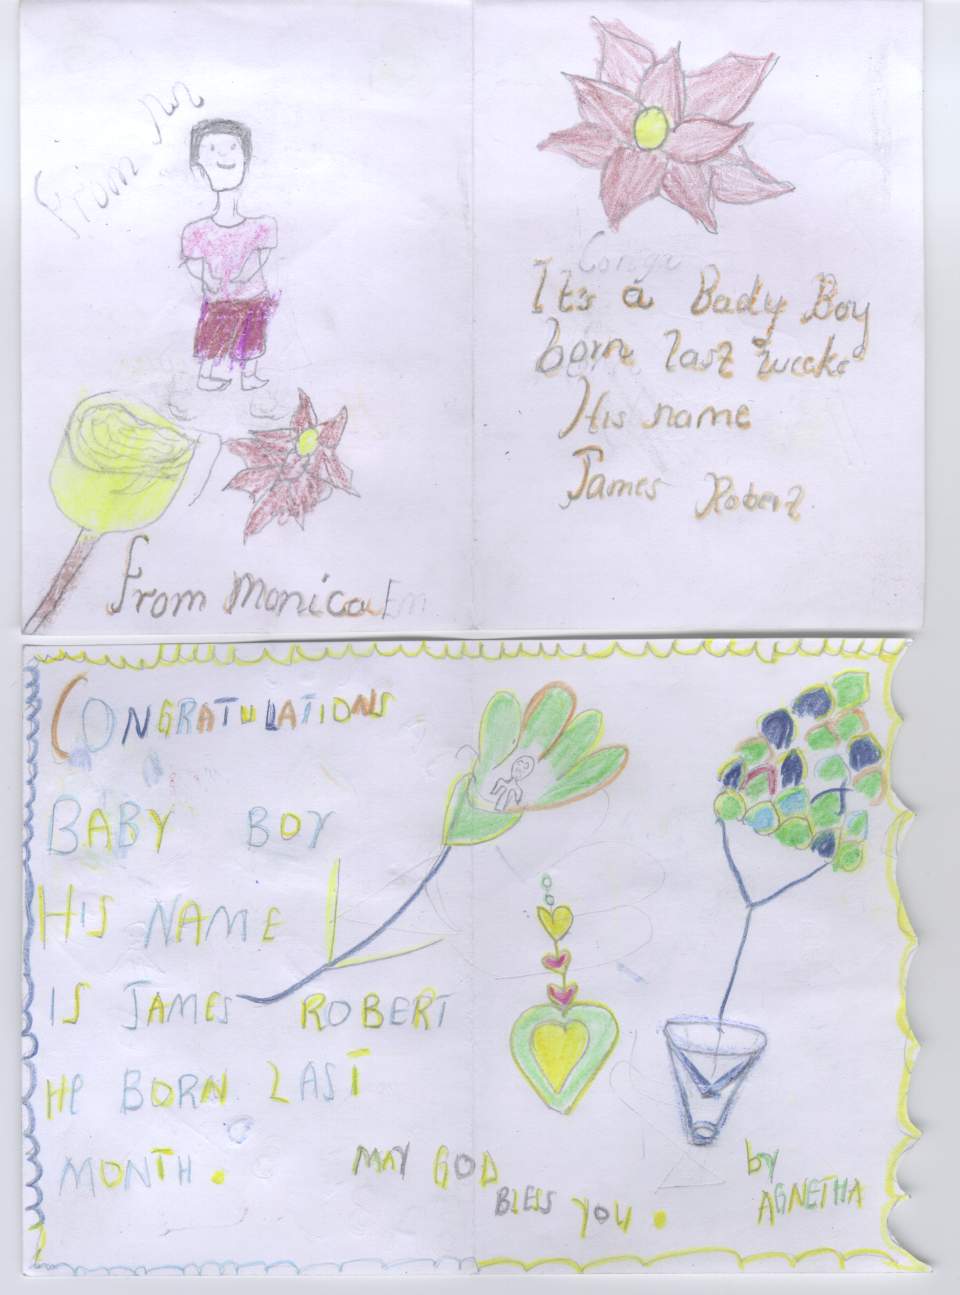 From
It's a Bady Boy
born last weeke
His name
James Robert.
From Monica
CONGRATULATIONS
BABY BOY
HIS NAME
IS JAMES ROBERT
HE BORN LAST
MONTH.
MAY GOD
BLESS YOU.
by
AGNETHA